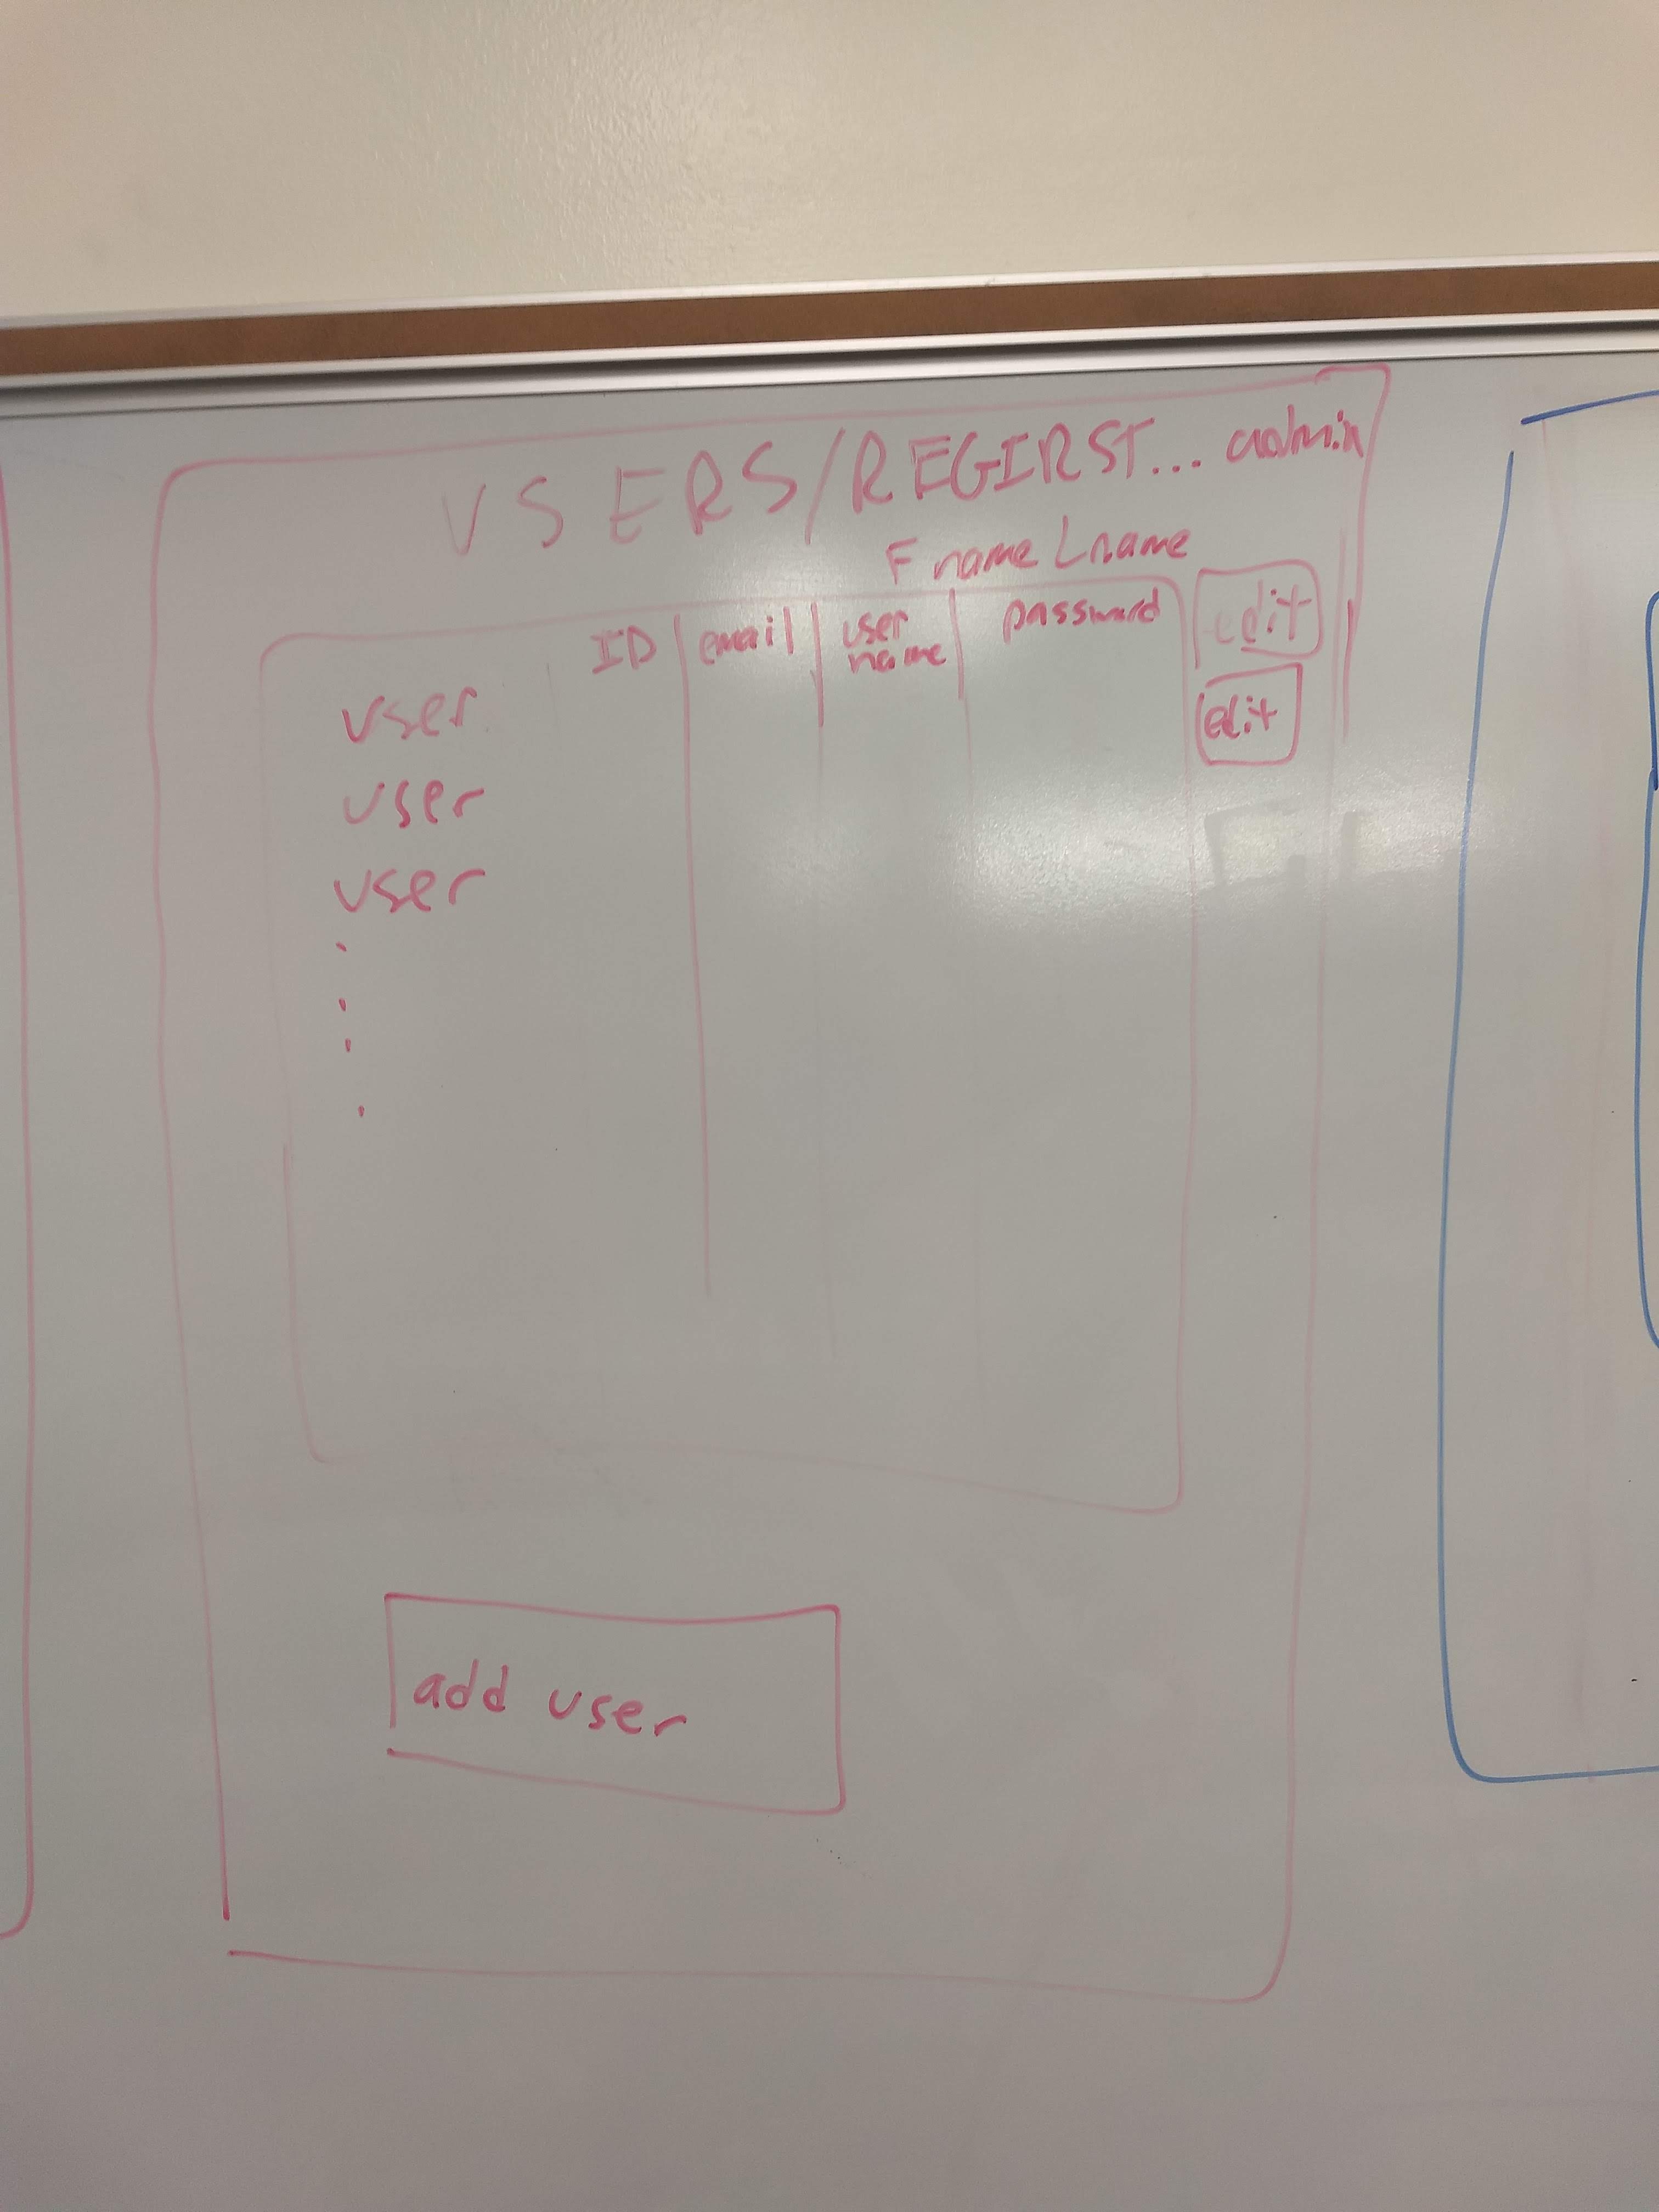 USERS/REGIRST... admin
F name Lname
ID email user name password edit
edit
user
user
user
.
.
.
.
add user